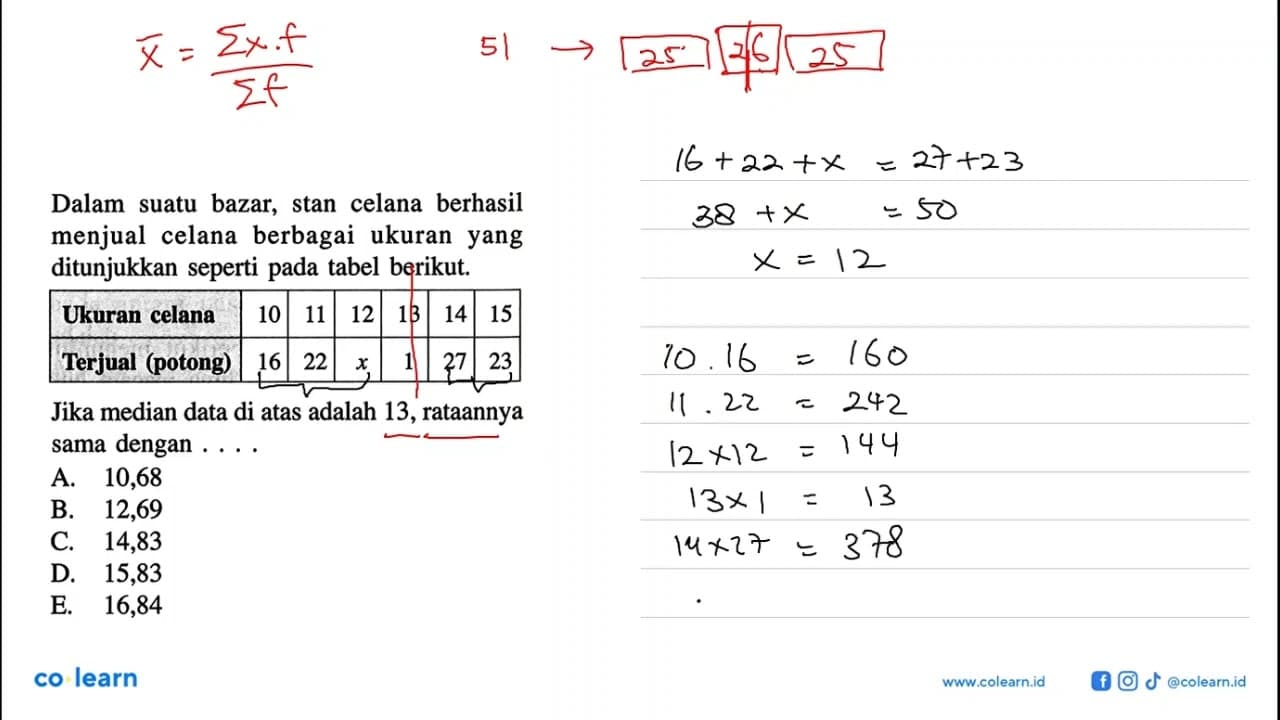 x̄ = Σx.f / Σf
51 → 25 26 25
Dalam suatu bazar, stan celana berhasil
menjual celana berbagai ukuran yang
ditunjukkan seperti pada tabel berikut.
Ukuran celana 10 11 12 13 14 15
Terjual (potong) 16 22 x 1 27 23
Jika median data di atas adalah 13, rataannya
sama dengan . . . .
A. 10,68
B. 12,69
C. 14,83
D. 15,83
E. 16,84
16 + 22 + x = 27 + 23
38 + x = 50
x = 12
10 . 16 = 160
11 . 22 = 242
12 x 12 = 144
13 x 1 = 13
14 x 27 = 378
co learn
www.colearn.id
@colearn.id